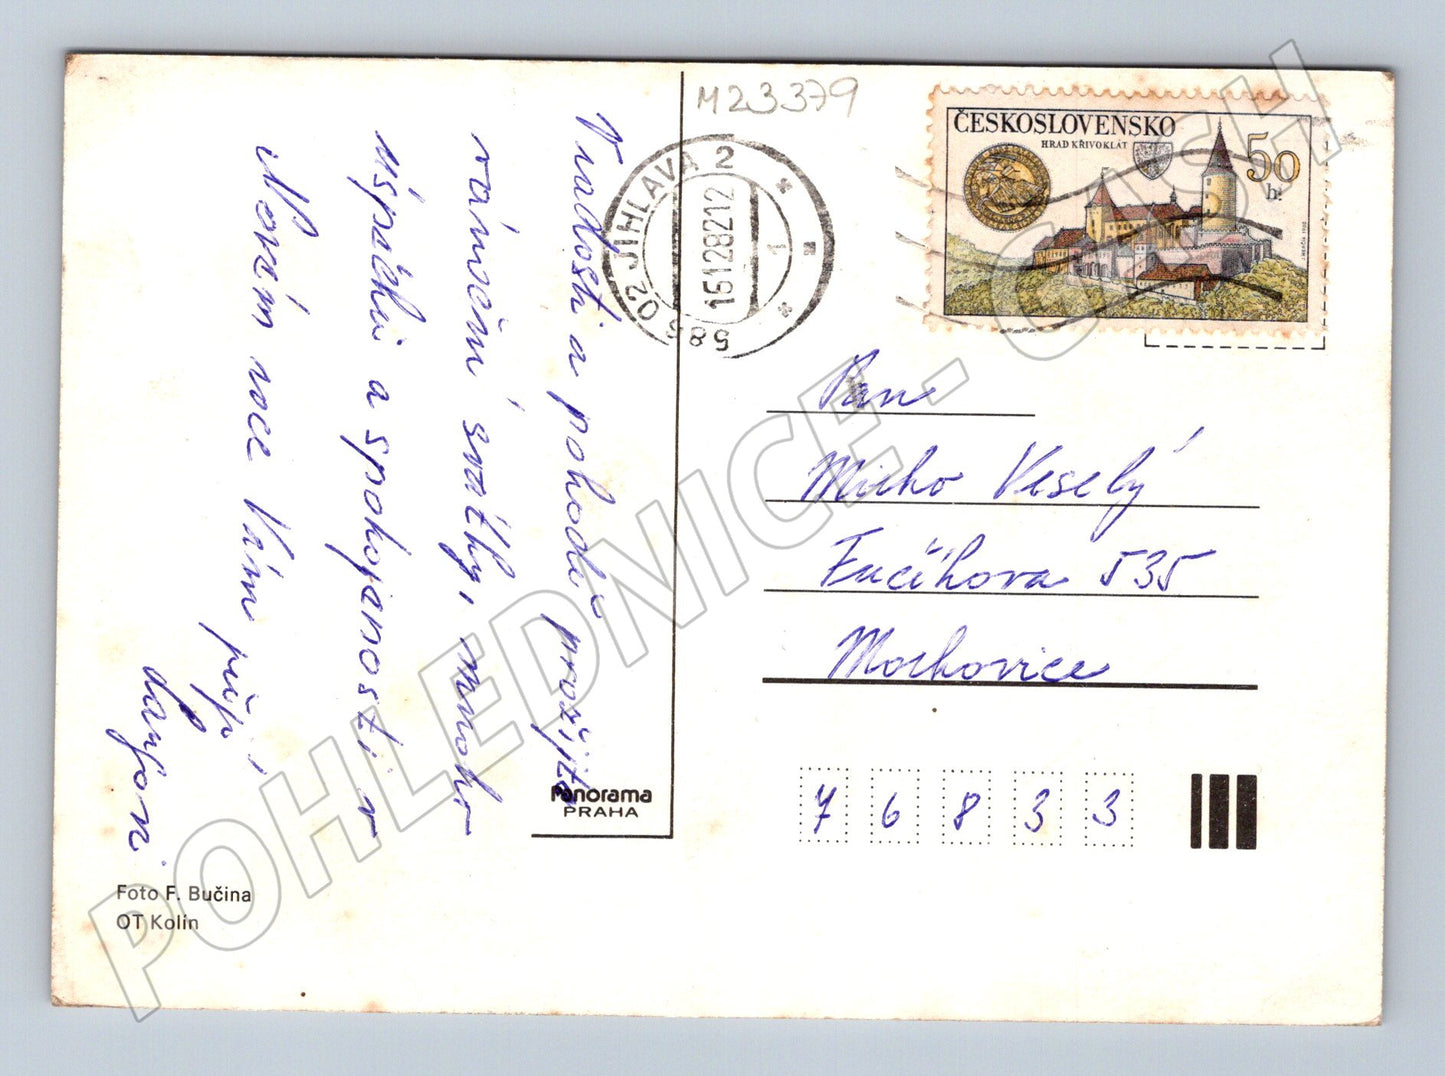 M23379
ČESKOSLOVENSKO
HRAD KŘIVOKLÁT
50
h
588 02 JIHLAVA 2
16.12.82.12
1
V radosti a pohodě prožijte
vánoční svátky, mnoho
úspěchů a spokojenosti v
Novém roce Vám přejí
Pan
Mirko Veselý
Fučíkova 535
Morkovice
76833
Panorama
PRAHA
Foto F. Bučina
OT Kolín
POHLEDNICE - CASH